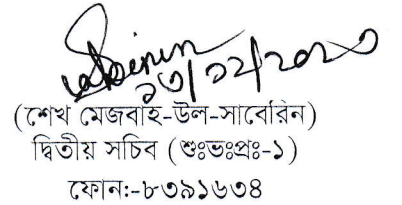 ১৩/১২/২০২০
(শেখ মেজবাহ-উল-সাবেরিন)
দ্বিতীয় সচিব (শুঃভঃপ্রঃ-১)
ফোন:-৮৩৯১৬৩৪